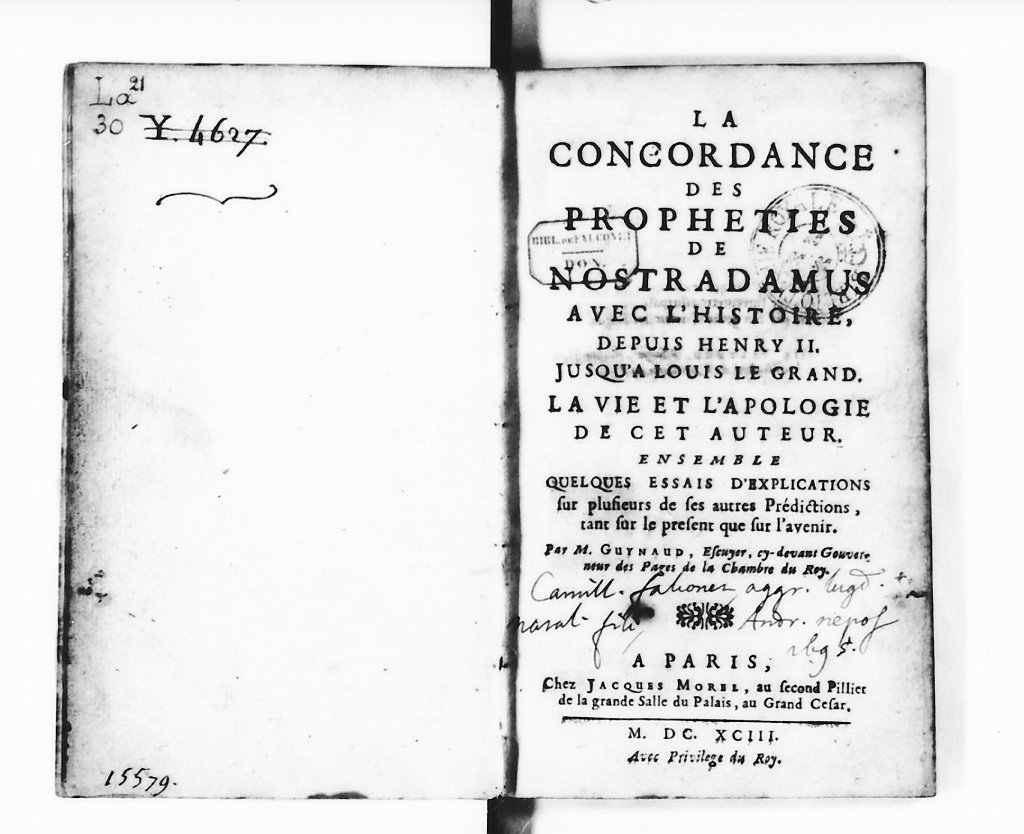 La²¹
30 Y. 4627
15579.
LA
CONCORDANCE
DES
PROPHETIES
DE
NOSTRADAMUS
AVEC L'HISTOIRE,
DEPUIS HENRY II.
JUSQU'A LOUIS LE GRAND.
LA VIE ET L'APOLOGIE
DE CET AUTEUR.
ENSEMBLE
QUELQUES ESSAIS D'EXPLICATIONS
ſur pluſieurs de ſes autres Prédictions,
tant ſur le preſent que ſur l'avenir.
Par M. GUYNAUD, Eſcuyer, cy-devant Gouver-
neur des Pages de la Chambre du Roy.
BIBL. DE FALCONET
DON.
Camill. falconet aggr. lugd.
Andr. nepos
A PARIS,
Chez JACQUES MOREL, au ſecond Pillier
de la grande Salle du Palais, au Grand Ceſar.
M. DC. XCIII.
Avec Privilege du Roy.